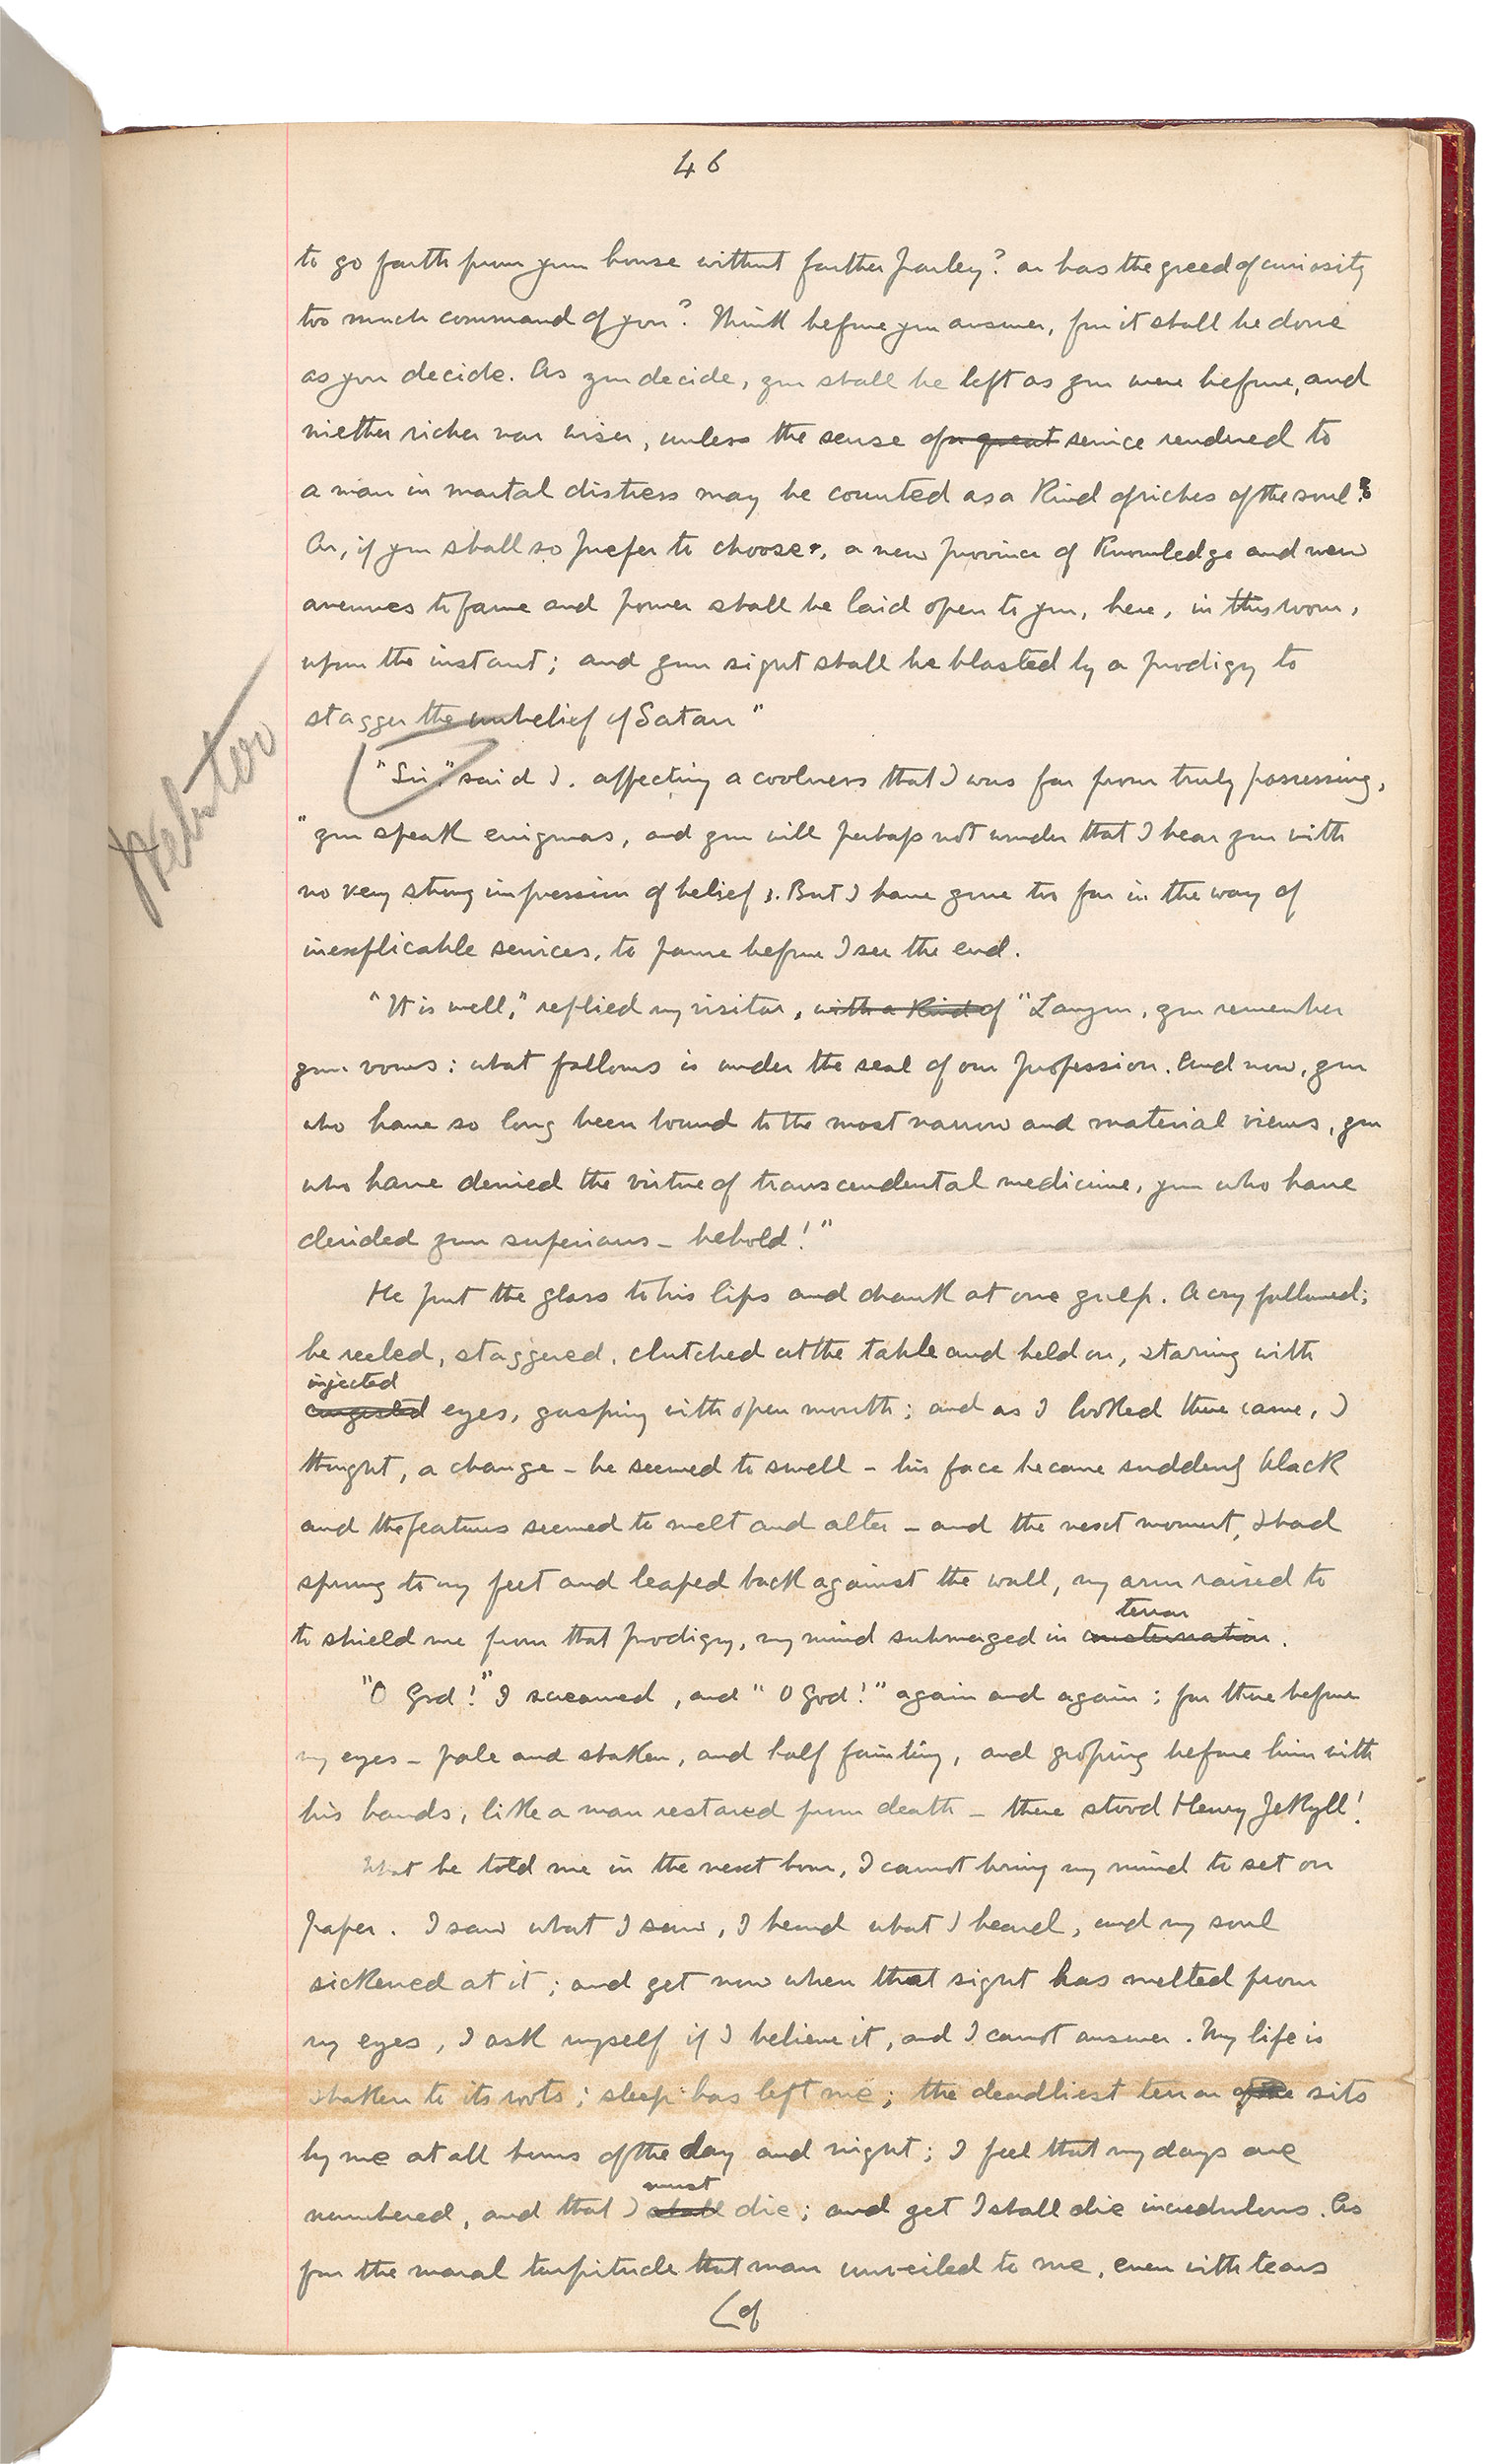 46
to go forth from your house without farther parley? or has the greed of curiosity
too much command of you? Think before you answer, for it shall be done
as you decide. As you decide, you shall be left as you were before, and
niether richer nor wiser, unless the sense of a great service rendered to
a man in mortal distress may be counted as a kind of riches of the soul.
Or, if you shall so prefer to choose, a new province of knowledge and new
avenues to fame and power shall be laid open to you, here, in this room,
upon the instant; and your sight shall be blasted by a prodigy to
stagger the unbelief of Satan"
"Sir," said I, affecting a coolness that I was far from truly possessing,
"you speak enigmas, and you will perhaps not wonder that I hear you with
no very strong impression of belief. But I have gone too far in the way of
inexplicable services, to pause before I see the end.
"It is well," replied my visitor, with a kind of "Lanyon, you remember
your vows: what follows is under the seal of our profession. And now, you
who have so long been bound to the most narrow and material views, you
who have denied the virtue of transcendental medicine, you who have
derided your superiors – behold!"
He put the glass to his lips and drank at one gulp. A cry followed;
he reeled, staggered, clutched at the table and held on, staring with
injected
congested eyes, gasping with open mouth; and as I looked there came, I
thought, a change – he seemed to swell – his face became suddenly black
and the features seemed to melt and alter – and the next moment, I had
sprung to my feet and leaped back against the wall, my arm raised to
terror
to shield me from that prodigy, my mind submerged in consternation.
"O God!" I screamed, and "O God!" again and again; for there before
my eyes – pale and shaken, and half fainting, and groping before him with
his hands, like a man restored from death – there stood Henry Jekyll!
What he told me in the next hour, I cannot bring my mind to set on
paper. I saw what I saw, I heard what I heard, and my soul
sickened at it; and yet now when that sight has melted from
my eyes, I ask myself if I believe it, and I cannot answer. My life is
shaken to its roots; sleep has left me; the deadliest terror sits
by me at all hours of the day and night; I feel that my days are
must
numbered, and that I shall die; and yet I shall die incredulous. As
for the moral turpitude that man unveiled to me, even with tears
(of